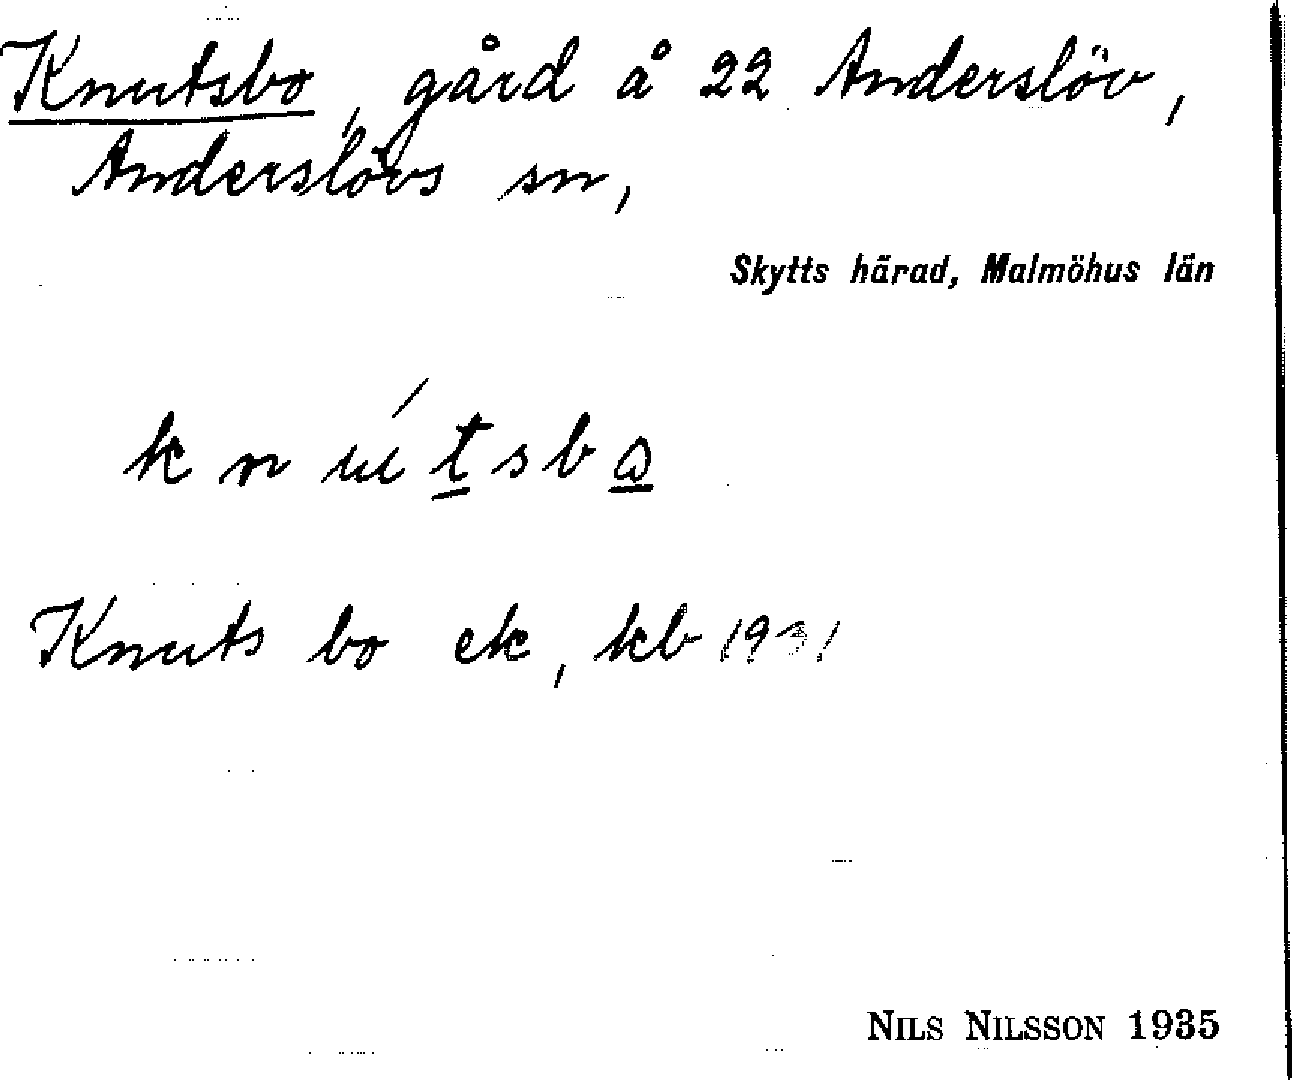 Knutsbo, gård å 22 Anderslöv,
Anderslövs sn,
Skytts härad, Malmöhus län
knútsbo
Knuts bo ek, kb 1931
NILS NILSSON 1935